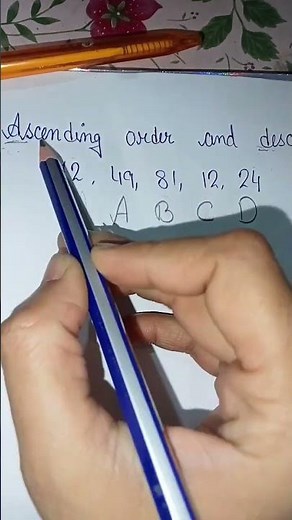 Ascending order and desc
2, 49, 81, 12, 24
A B C D